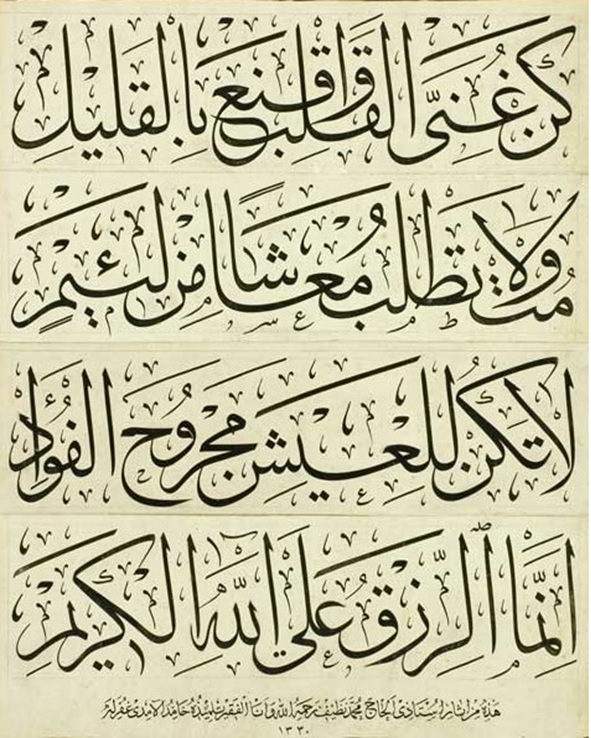 كن غنيّ القلب واقنع بالقليل
مت ولا تطلب معاشا من لئيم
لا تكن للعيش مجروح الفؤاد
انّما الرّزق على الله الكريم
هذه من اثار استاذى الحاج محمد نظيف رحمه الله وانا الفقير تلميذه حامد الامدى غفر له
١٣٣٠